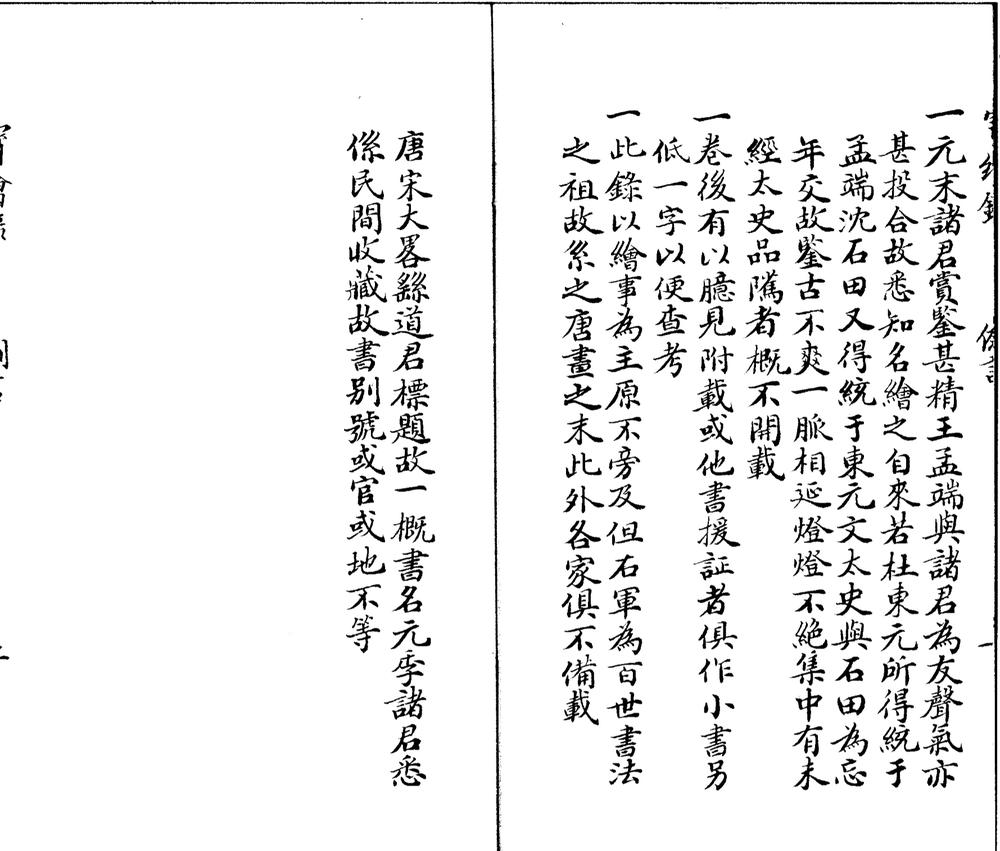 一元末諸君賞鑒甚精王孟端與諸君為友聲氣亦
甚投合故悉知名繪之自來若杜東元所得統于
孟端沈石田又得統于東元文太史與石田為忘
年交故鑒古不爽一脈相延燈燈不絕集中有未
經太史品隲者概不開載
一卷後有以臆見附載或他書援証者俱作小書另
低一字以便查考
一此錄以繪事為主原不旁及但右軍為百世書法
之祖故系之唐畫之末此外各家俱不備載
唐宋大畧繇道君標題故一概書名元季諸君悉
係民間收藏故書别號或官或地不等